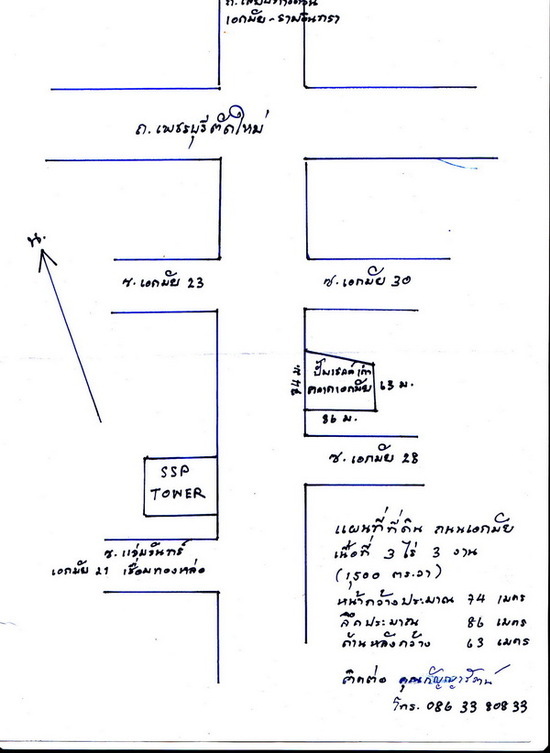 เอกมัย - รามอินทรา
ถ. เพชรบุรีตัดใหม่
น.
ซ. เอกมัย 23
ซ. เอกมัย 30
74 ม.
ปั๊มเชลล์เก่า
ตลาดเอกมัย
63 ม.
86 ม.
ซ. เอกมัย 28
SSP
TOWER
ซ. แจ่มจันทร์
เอกมัย 21 เชื่อมทองหล่อ
แผนที่ที่ดิน ถนนเอกมัย
เนื้อที่ 3 ไร่ 3 งาน
(1,500 ตร.วา)
หน้ากว้างประมาณ 74 เมตร
ลึกประมาณ 86 เมตร
ด้านหลังกว้าง 63 เมตร
ติดต่อ คุณกัญญารัตน์
โทร. 086 33 808 33